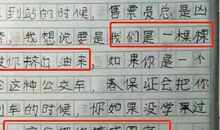 到站的时候，售票员总是凶
我想说要是我们是一棵棵
你挤出油来，如果你是一个
这种公交车，我保证会把你
车的时候，你如果没学来过